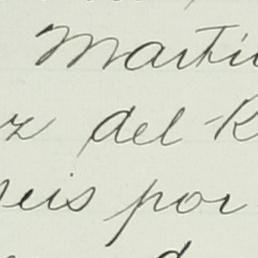 Martí
z del R
seis por